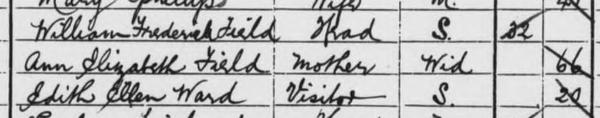 Mary Phillips Wife M.
William Frederick Field Head S. 32
Ann Elizabeth Field Mother Wid 66
Edith Ellen Ward Visitor S. 20